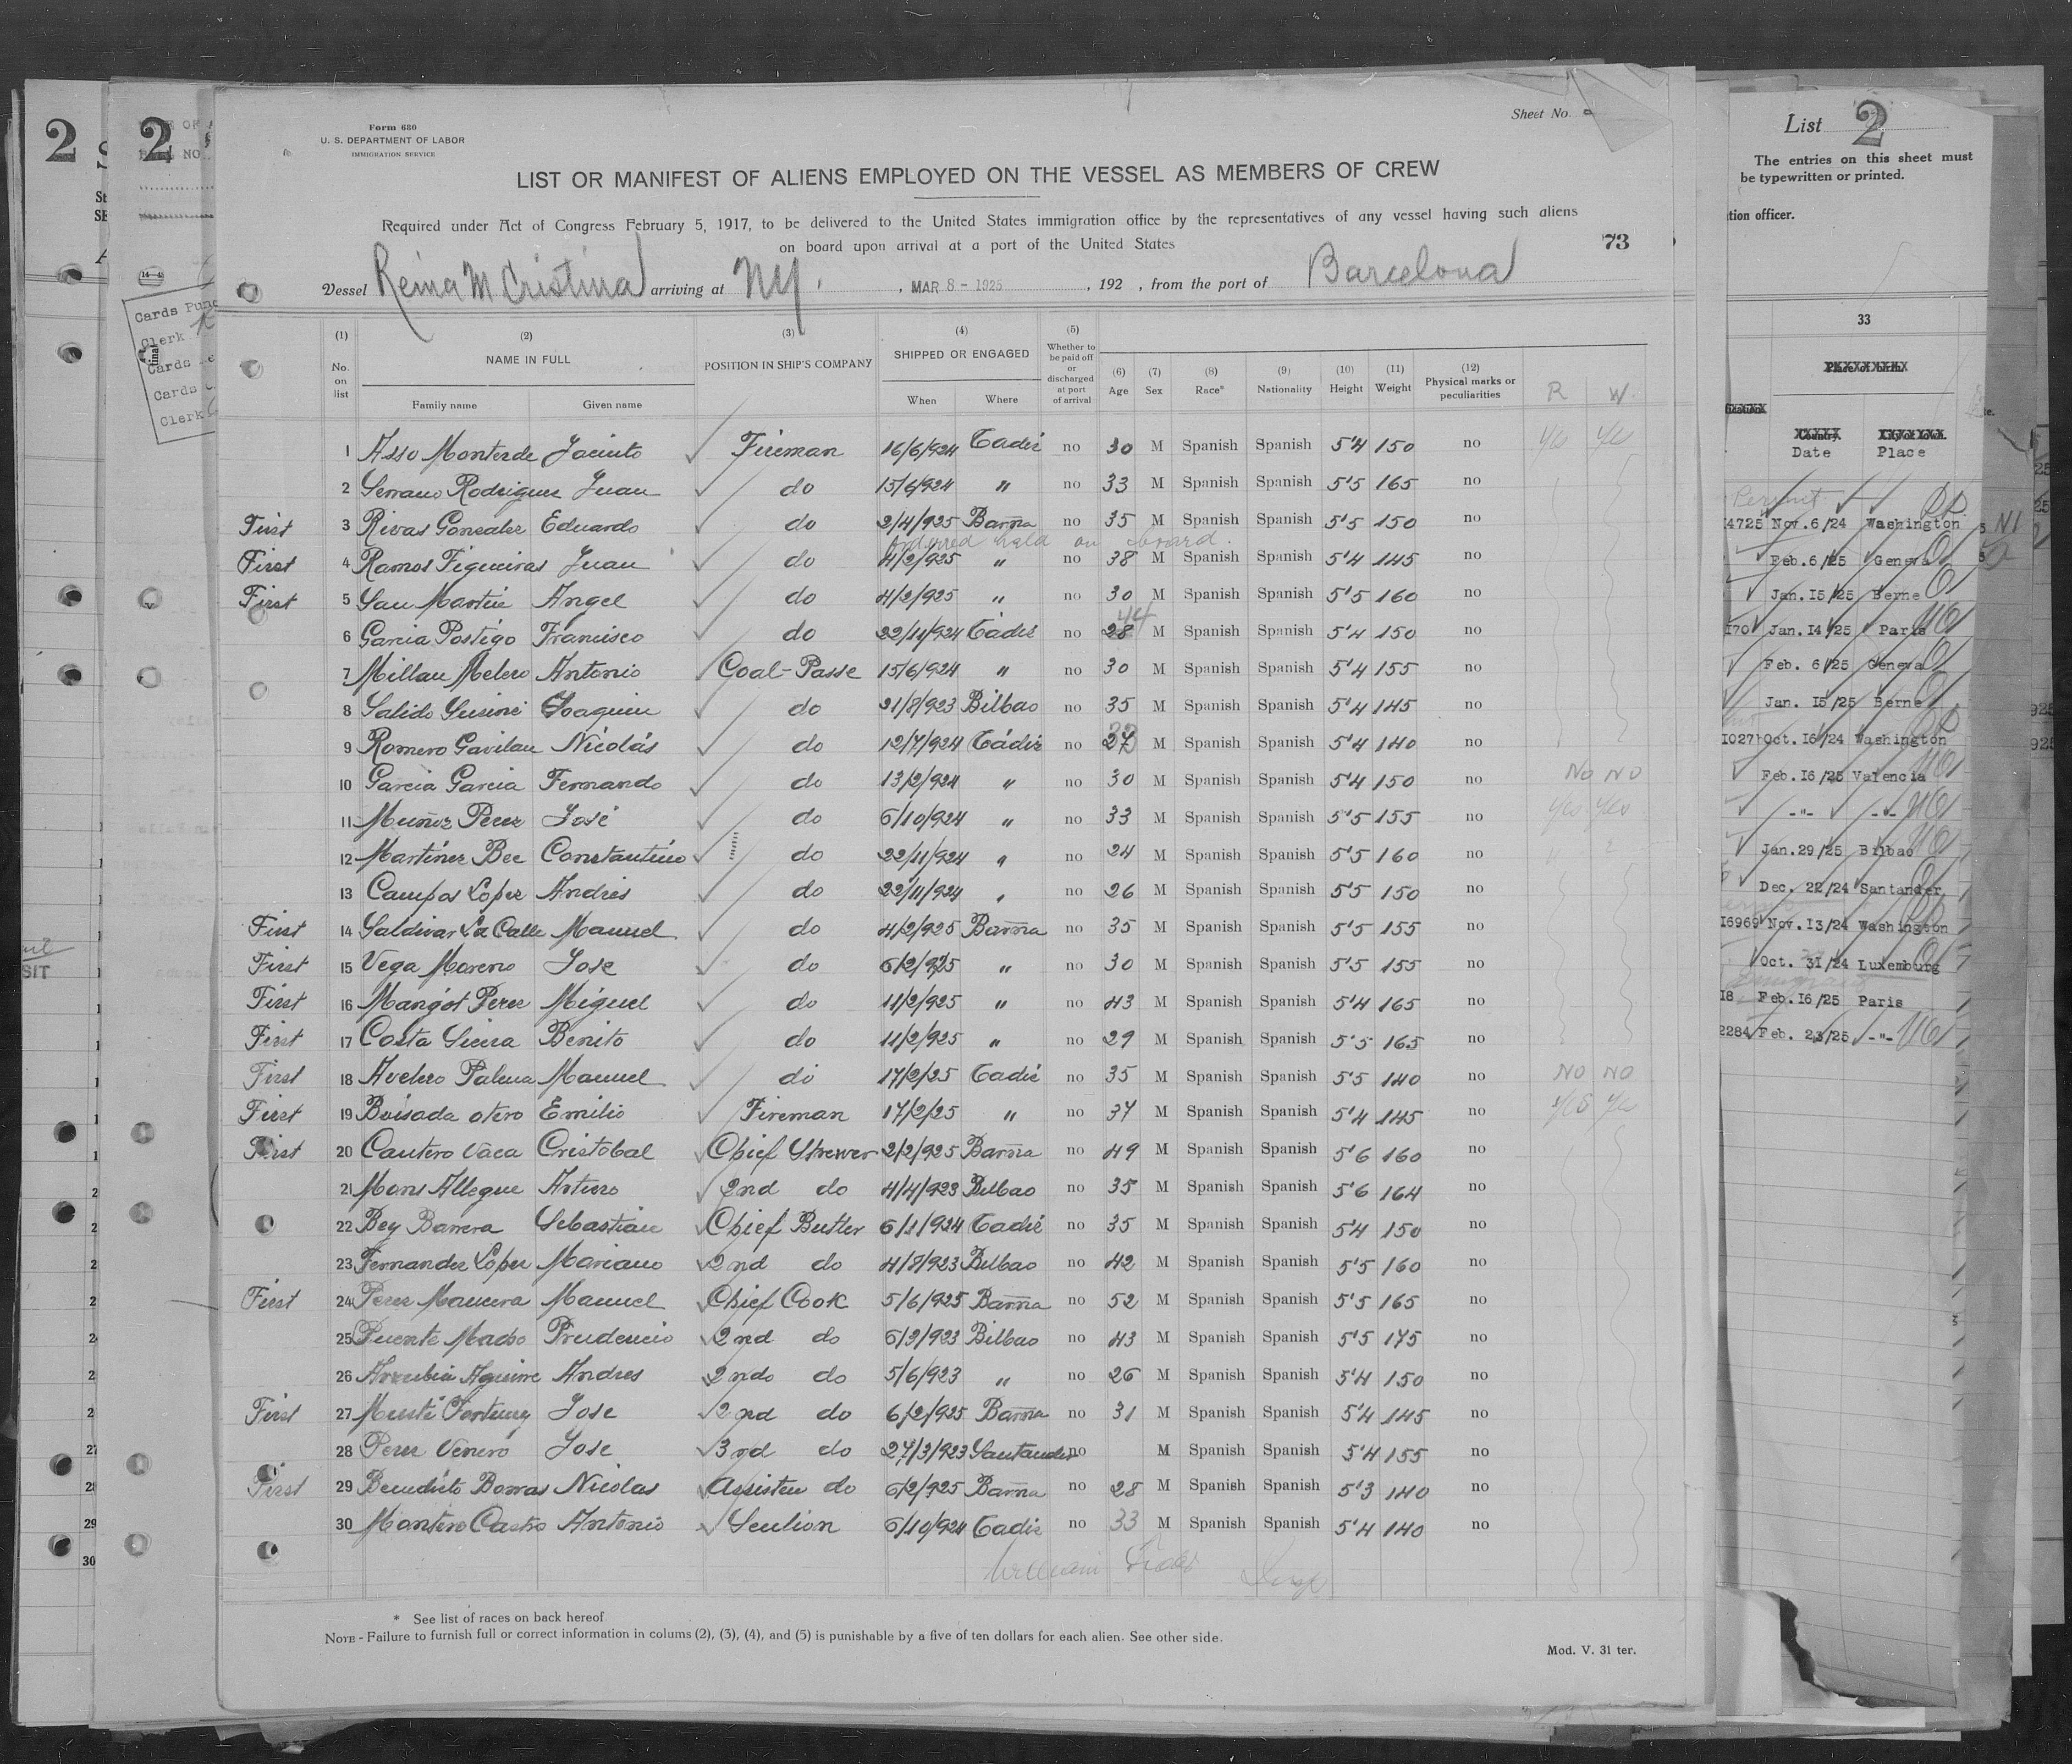 Form 680
U. S. DEPARTMENT OF LABOR
IMMIGRATION SERVICE
Sheet No.
LIST OR MANIFEST OF ALIENS EMPLOYED ON THE VESSEL AS MEMBERS OF CREW
Required under Act of Congress February 5, 1917, to be delivered to the United States immigration office by the representatives of any vessel having such aliens
on board upon arrival at a port of the United States
73
Vessel Reina M Cristina arriving at NY. , MAR 8 - 1925 , 192 , from the port of Barcelona
(1) No. on list (2) NAME IN FULL Family name Given name (3) POSITION IN SHIP'S COMPANY (4) SHIPPED OR ENGAGED When Where (5) Whether to be paid off or discharged at port of arrival (6) Age (7) Sex (8) Race* (9) Nationality (10) Height (11) Weight (12) Physical marks or peculiarities R W.
1 Asso Monterde Jacinto Fireman 16/6/924 Cadiz no 30 M Spanish Spanish 5'4 150 no Yes Yes
2 Serrano Rodriguez Juan do 15/6/924 " no 33 M Spanish Spanish 5'5 165 no
First 3 Rivas Gonzalez Eduardo do 2/4/925 Barña no 35 M Spanish Spanish 5'5 150 no
Ordered held on board.
First 4 Ramos Figueiras Juan do 4/2/925 " no 38 M Spanish Spanish 5'4 145 no
First 5 San Martin Angel do 4/2/925 " no 30 M Spanish Spanish 5'5 160 no
6 Garcia Postigo Francisco do 22/11/924 Cádiz no 28 44 M Spanish Spanish 5'4 150 no
7 Millan Melero Antonio Coal-Passe 15/6/924 " no 30 M Spanish Spanish 5'4 155 no
8 Salido Joaquin do 21/8/923 Bilbao no 35 M Spanish Spanish 5'4 145 no
9 Romero Gavilan Nicolás do 12/7/924 Cádiz no 27 M Spanish Spanish 5'4 140 no
10 Garcia Garcia Fernando do 13/2/924 " no 30 M Spanish Spanish 5'4 150 no NO NO
11 Muñoz Perez José do 6/10/924 " no 33 M Spanish Spanish 5'5 155 no Yes Yes
12 Martinez Bee Constantino do 22/11/924 " no 24 M Spanish Spanish 5'5 160 no
13 Campos Lopez Andrés do 22/11/924 " no 26 M Spanish Spanish 5'5 150 no
First 14 Saldivar La Calle Manuel do 4/2/925 Barña no 35 M Spanish Spanish 5'5 155 no
First 15 Vega Moreno Jose do 6/2/925 " no 30 M Spanish Spanish 5'5 155 no
First 16 Mangot Perez Miguel do 11/2/925 " no 43 M Spanish Spanish 5'4 165 no
First 17 Costa Benito do 11/2/925 " no 29 M Spanish Spanish 5'5 165 no
First 18 Avelero Manuel do 17/2/25 Cadiz no 35 M Spanish Spanish 5'5 140 no NO NO
First 19 Boisada otero Emilio Fireman 17/2/25 " no 37 M Spanish Spanish 5'4 145 no Yes Yes
First 20 Cantero Vaca Cristobal Chief 2/2/925 Barña no 49 M Spanish Spanish 5'6 160 no
21 Mons Allegue Arturo 2nd do 4/4/923 Bilbao no 35 M Spanish Spanish 5'6 164 no
22 Bey Barrera Sebastian Chief Butler 6/1/924 Cadiz no 35 M Spanish Spanish 5'4 150 no
23 Fernandez Lopez Mariano 2nd do 4/8/923 Bilbao no 42 M Spanish Spanish 5'5 160 no
First 24 Perez Mancera Manuel Chief Cook 5/6/925 Barña no 52 M Spanish Spanish 5'5 165 no
25 Puente Mado Prudencio 2nd do 6/3/923 Bilbao no 43 M Spanish Spanish 5'5 175 no
26 Arrubia Aguirre Andres 2nd do 5/6/923 " no 26 M Spanish Spanish 5'4 150 no
First 27 Musté Fortuny Jose 2nd do 6/2/925 Barña no 31 M Spanish Spanish 5'4 145 no
28 Perez Venero Jose 3nd do 27/3/923 Santander no M Spanish Spanish 5'4 155 no
First 29 Benedicto Borras Nicolas Assisten do 6/2/925 Barña no 28 M Spanish Spanish 5'3 140 no
30 Montero Castro Antonio Scullion 6/10/924 Cadiz no 33 M Spanish Spanish 5'4 140 no
William
* See list of races on back hereof
NOTE - Failure to furnish full or correct information in colums (2), (3), (4), and (5) is punishable by a five of ten dollars for each alien. See other side.
Mod. V. 31 ter.
2
2
Cards
Clerk
Cards
Cards
Clerk
List 2
The entries on this sheet must
be typewritten or printed.
tion officer.
33
Date Place
Permit
4725 Nov.6/24 Washington
Feb.6/25 Geneva
Jan.15/25 Berne
170 Jan.14/25 Paris
Feb. 6/25 Geneva
Jan. 15/25 Berne
10271 Oct.16/24 Washington
Feb.16/25 Valencia
-"- -"-
Jan.29/25 Bilbao
Dec. 22/24 Santander
16969 Nov.13/24 Washington
Oct. 31/24 Luxemburg
18 Feb.16/25 Paris
2284 Feb. 23/25 -"-